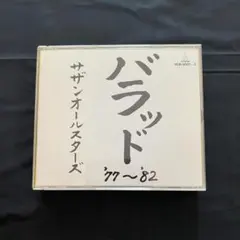 バラッド
'77~'82
サザンオールスターズ